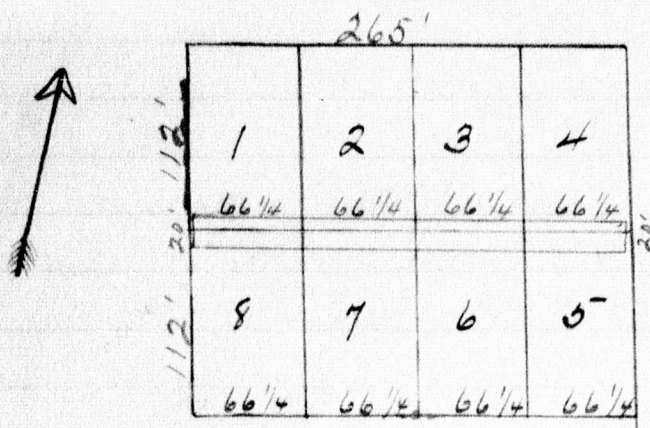 265'
112'
1 2 3 4
66 1/4 66 1/4 66 1/4 66 1/4
20' 20'
112'
8 7 6 5
66 1/4 66 1/4 66 1/4 66 1/4